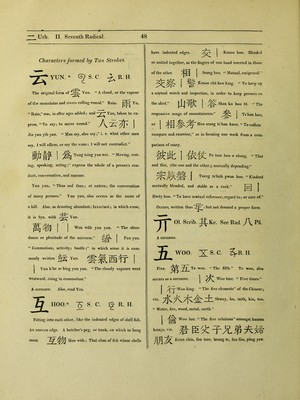 二 Urh. II. Seventh Radical. 48
Characters formed by Two Strokes.
云 YUN. S. C. R. H.
The original form of 雲 Yun. "A cloud, or the vapour
of the mountains and rivers rolling round." Rain 雨 Yu,
"Rain," was, in after ages added; and 云 Yun, taken to express,
"To say; to move round." 人云亦云
Jin yun yĭh yun. "Men say, also say;" i. e. what other men
say, I will affirm, or say the same; I will not contradict.
動靜云爲 Tung tsing yun wei. "Moving, resting,
speaking, acting;" express the whole of a person's conduct,
conversation, and manner.
Yun yun. "Thus and thus; et cetera; the conversation
of many persons." Yun yun, also occurs as the name of
a hill. Also, as denoting abundant;
is Syn. with 芸 Yun.
萬物云云 Wan wŭh yun yun. "The abundance
or plenitude of the universe."
"Commotion; activity; bustle;"
monly written 紜 Yun. 雲氣西行云云
Yun k'he se hing yun yun. "The cloudy vapours went
westward, rising in commotion."
A surname. Also, read Yun.
互 HOO. S. C. R. H.
Fitting into each other, like the indented edges of shell fish.
An uneven edge. A butcher's peg, or hook, on which to hang
meat. 互物 Hoo wŭh; That class of fish whose shells
have indented edges. 交互 Keaou hoo. Blended
or united together, as the fingers of one hand inserted in those
of the other. 相互 Seang hoo. "Mutual, reciprocal."
交察互警 Keaou chă hoo king. "To keep up
a mutual watch and inspection, in order to keep persons on
the alert." 山歌互答 Shan ko hoo tă. "The
responsive songs of mountaineers." 參互 Ts'han hoo,
or 相參考 "To collate
compare and examine," as in forming one work from a comparison
of many.
彼此互依仗 Pe tsze hoo e chang. "That
and this, (the one and the other,) mutually depending."
宗族磐互 Tsung tsŭh pwan hoo. "Kindred
mutually blended, and stable as a rock." 回互
Hwuy hoo. "To have mutual reference, regard to, or care of."
亓 Ol. Scrib. 其 Ke. See Rad. 八 Pă.
A surname.
五 WOO. S. C. R. H.
Five. 第五 Te woo. "The fifth." Te woo, also
occurs as a surname. 五次 Woo tsze. "Five times."
五行 Woo hing. "The five elements" of the Chinese;
viz. 水火木金土 Shwuy, ho, mŭh, kin, too.
"Water, fire, wood, metal, earth."
五倫 Woo lun. "The five relations" amongst human
beings, viz. 君臣父子兄弟夫婦
朋友 Keun chin, foo tsze, heung te, foo foo, pǎng yew